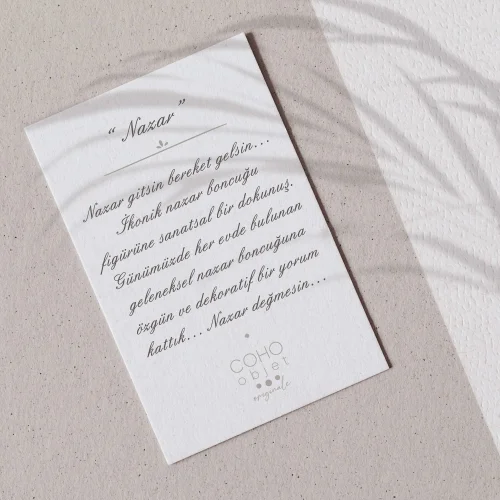 “ Nazar ”
Nazar gitsin bereket gelsin...
İkonik nazar boncuğu
figürüne sanatsal bir dokunuş.
Günümüzde her evde bulunan
geleneksel nazar boncuğuna
özgün ve dekoratif bir yorum
kattık... Nazar değmesin...
COHO
objet
originals